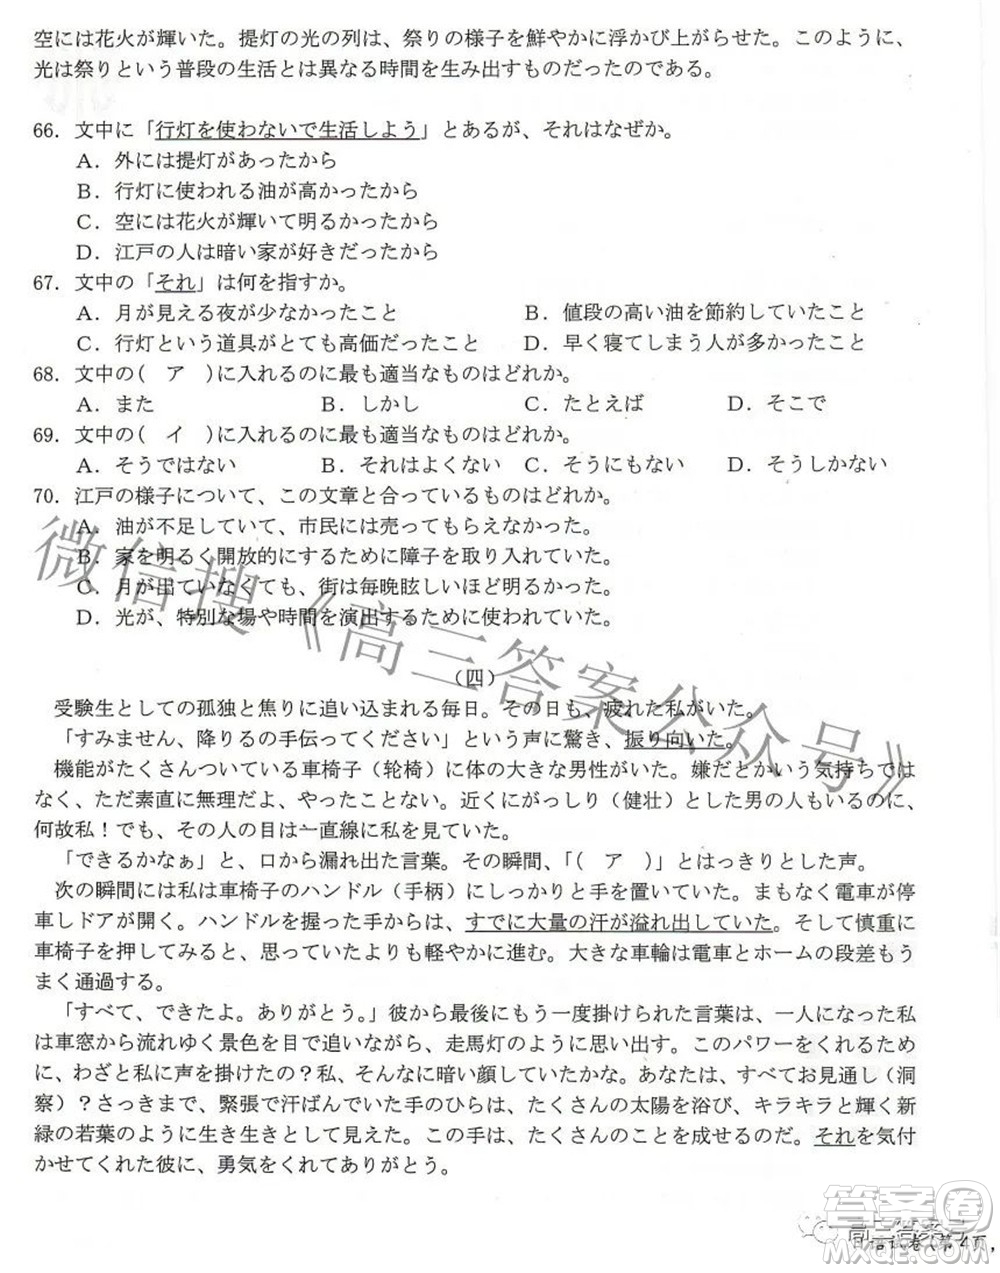 空には花火が輝いた。提灯の光の列は、祭りの様子を鮮やかに浮かび上がらせた。このように、
光は祭りという普段の生活とは異なる時間を生み出すものだったのである。
66．文中に「行灯を使わないで生活しよう」とあるが、それはなぜか。
A．外には提灯があったから
B．行灯に使われる油が高かったから
C．空には花火が輝いて明るかったから
D．江戸の人は暗い家が好きだったから
67．文中の「それ」は何を指すか。
A．月が見える夜が少なかったこと B．値段の高い油を節約していたこと
C．行灯という道具がとても高価だったこと D．早く寝てしまう人が多かったこと
68．文中の(　ア　)に入れるのに最も適当なものはどれか。
A．また B．しかし C．たとえば D．そこで
69．文中の(　イ　)に入れるのに最も適当なものはどれか。
A．そうではない B．それはよくない C．そうにもない D．そうしかない
70．江戸の様子について、この文章と合っているものはどれか。
A．油が不足していて、市民には売ってもらえなかった。
B．家を明るく開放的にするために障子を取り入れていた。
C．月が出ていなくても、街は毎晩眩しいほど明るかった。
D．光が、特別な場や時間を演出するために使われていた。
（四）
受験生としての孤独と焦りに追い込まれる毎日。その日も、疲れた私がいた。
「すみません、降りるの手伝ってください」という声に驚き、振り向いた。
機能がたくさんついている車椅子（轮椅）に体の大きな男性がいた。嫌だとかいう気持ちではなく、
なく、ただ素直に無理だなぁ、やったことない。近くにがっしり（健壮）とした男の人もいるのに、
何故私！でも、その人の目は一直線に私を見ていた。
「できるかなぁ」と、口から漏れ出た言葉。その瞬間、「(　ア　)」とはっきりとした声。
次の瞬間には私は車椅子のハンドル（手柄）にしっかりと手を置いていた。まもなく電車が停
車しドアが開く。ハンドルを握った手からは、すでに大量の汗が溢れ出していた。そして慎重に
車椅子を押してみると、思っていたよりも軽やかに進む。大きな車輪は電車とホームの段差もう
まく通過する。
「すべて、できたよ。ありがとう。」彼から最後にもう一度掛けられた言葉は、一人になった私
は車窓から流れゆく景色を目で追いながら、走馬灯のように思い出す。このパワーをくれるため
に、わざと私に声を掛けたの？私、そんなに暗い顔していたかな。あなたは、すべてお見通し（洞
察）？さっきまで、緊張で汗ばんでいた手のひらは、たくさんの太陽を浴び、キラキラと輝く新
緑の若葉のように生き生きとして見えた。この手は、たくさんのことを成せるのだ。それを気付
かせてくれた彼に、勇気をくれてありがとう。
微信搜《高三答案公众号》
答案卷
高三答案号
日语试卷（第 4页，